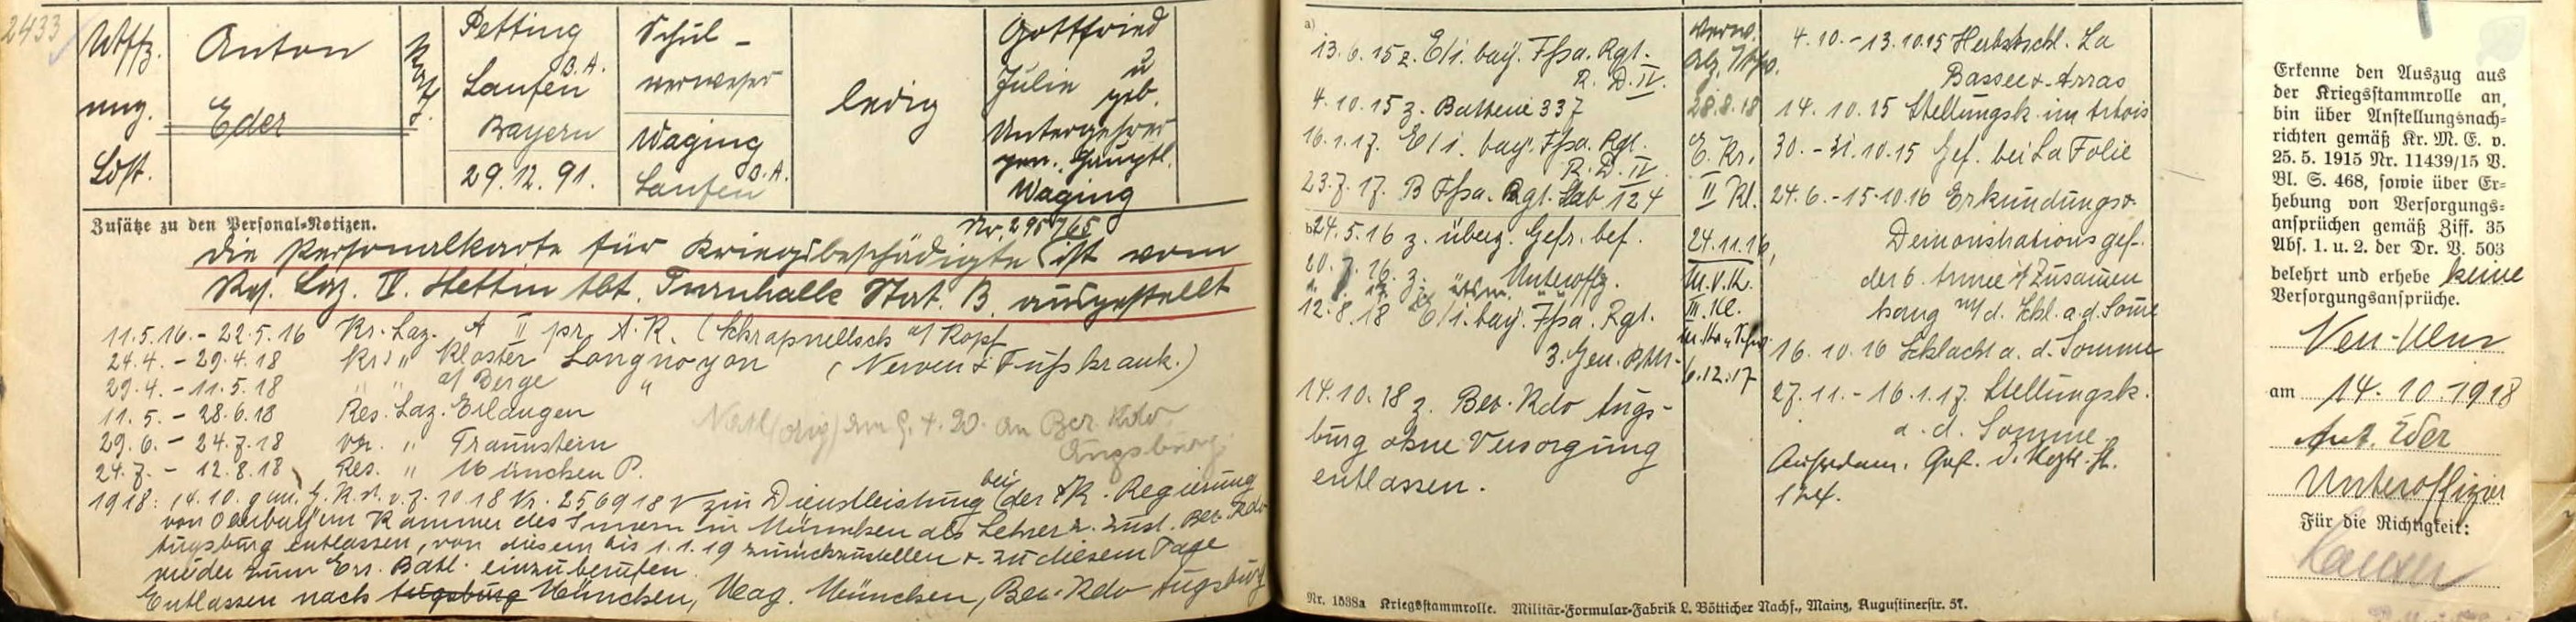 2433
Utffz.
ung.
Ldst.
Anton
Eder
kath.
Petting
B.A.
Laufen
Bayern
29.12.91.
Schul-
verweser
Waging
B.A.
Laufen
ledig
Gottfried
u
Julie geb.
Untergehrer
Hauptl.
Waging
Zusätze zu den Personal-Notizen.
Nr. 2957/65
Die Personalkarte für Kriegsbeschädigte ist vom
Res. Laz. IV. Stettin Abt. Turnhalle Stat. B. ausgestellt
11.5.16. - 22.5.16 Kr. Laz. A II pr. A.K. (Schrapnellsch a/ Kopf
24.4. - 29.4.18 Kr. " Kloster Longuyon (Nerven & Fuß krank.)
29.4. - 11.5.18 " " a/ Berge "
11.5. - 28.6.18 Res. Laz. Erlangen
29.6. - 24.7.18 Vr. " Traunstein
24.7. - 12.8.18 Res. " München P.
am 9.4.20. an Bez. Kdo
Augsburg
1918: 14.10. gem. v. 7.10.18 Nr. 256918 V zur Dienstleistung bei der K. Regierung
von Oberbayern Kammer des Innern in München als Lehrer z. zust. Bez. Kdo
Augsburg entlassen, von diesem bis 1.1.19 zurückzustellen & zu diesem Tage
wieder zum Ers. Batl. einzuberufen.
Entlassen nach Augsburg München, Mag. München, Bez. Kdo Augsburg
a)
13.6.15 z. E/1. bay. Fßa. Rgt.
R. D. IV.
4.10.15 z. Batterie 337
16.1.17. E/1. bay. Fßa. Rgt.
R. D. IV.
23.7.17. B Fßa. Rgt. Stab 124
b)
24.5.16 z. überz. Gefr. bef.
20.7.16. z. Unteroffz.
12.8.18 E/1. bay. Fßa. Rgt.
3. Gen.
14.10.18 z. Bez. Kdo Augs-
burg ohne Versorgung
entlassen.
Verw.
28.8.18
E. Kr.
II Kl.
24.11.16,
M.V.K.
III. Kl.
6.12.17
4.10. - 13.10.15 Herbstschl. La
Bassee & Arras
14.10.15 Stellungsk. im Artois
30. - 31.10.15 Gef. bei La Folie
24.6. - 15.10.16 Erkundungs &
Demonstrationsgef.
der 6. Armee i/ Zusamen
hang m/ d. Schl. a. d. Some
16.10.16 Schlacht a. d. Somme
27.11. - 16.1.17. Stellungsk.
a. d. Somme
Erkenne den Auszug aus
der Kriegsstammrolle an,
bin über Anstellungsnach-
richten gemäß Kr. M. E. v.
25. 5. 1915 Nr. 11439/15 V.
Bl. S. 468, sowie über Er-
hebung von Versorgungs-
ansprüchen gemäß Ziff. 35
Abs. 1. u. 2. der Dr. V. 503
belehrt und erhebe keine
Versorgungsansprüche.
Neu-Ulm
am 14.10.1918
Ant. Eder
Unteroffizier
Für die Richtigkeit:
Nr. 1538a Kriegsstammrolle. Militär-Formular-Fabrik L. Bötticher Nachf., Mainz, Augustinerstr. 57.